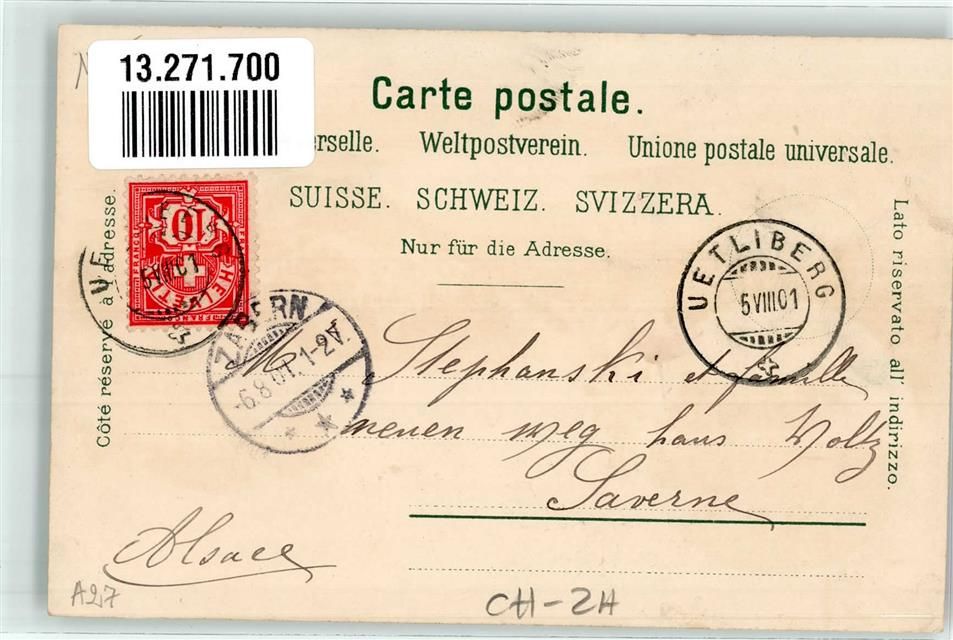 13.271.700
Carte postale.
erselle. Weltpostverein. Unione postale universale.
SUISSE. SCHWEIZ. SVIZZERA.
Nur für die Adresse.
Côté réservé à l'adresse.
Lato riservato all' indirizzo.
10
FRANCO
HELVETIA
FRANCO
UE
5 VIII 01
UETLIBERG
5 VIII.01
ZABERN
6.8.01. 1-2 V.
M Stephanski et famille
neuen weg haus Woltz
Saverne
Alsace
A27
CH-ZH